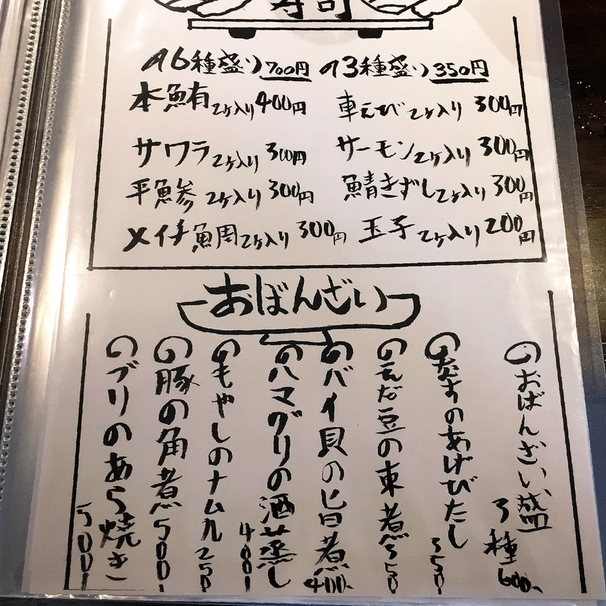 寿司
の6種盛り 700円 の3種盛り 350円
本鮪 2ヶ入り 400円 車えび 2ヶ入り 300円
サワラ 2ヶ入り 300円 サーモン 2ヶ入り 300円
平鰺 2ヶ入り 300円 鯖きずし 2ヶ入り 300円
メイチ鯛 2ヶ入り 300円 玉子 2ヶ入り 200円
おばんざい
のおばんざい盛 3種 600、
のあげびたし 350
のえだ豆の東煮 350
のバイ貝の旨煮 400、
のハマグリの酒蒸し 400
のもやしのナムル 250
の豚の角煮 500
のブリのあら焼き 500